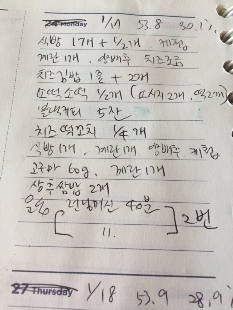 24 Monday 1/17 53.8 30.1%
식빵 1개 + 1/2개. 케챱
계란 1개. 양배추 치즈조금
치즈김밥 1줄 + 2개
소떡소떡 1/2개 (소시지 2개, 떡2개)
블랙커피 5잔
치즈 떡꼬치 1/4개
식빵 1개. 계란1개 양배추 케챱
고구마 60g. 계란 1개
상추쌈밥 2개
운동 런닝머신 40분
11.
2번
27 Thursday 1/18 53.9 28.9%